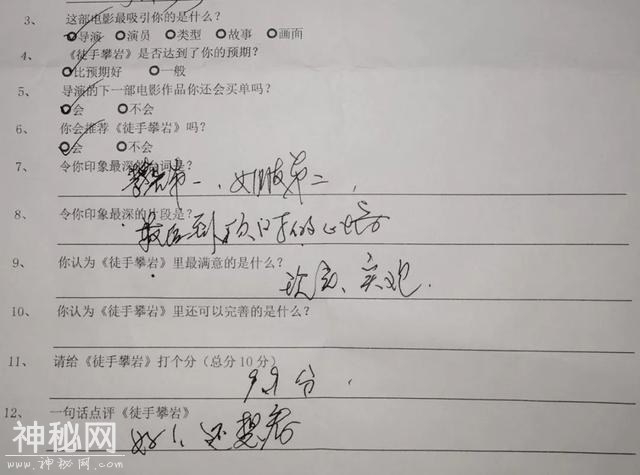 3、 这部电影最吸引你的是什么?
导演 演员 类型 故事 画面
4、 《徒手攀岩》是否达到了你的预期?
比预期好 一般
5、 导演的下一部电影作品你还会买单吗?
会 不会
6、 你会推荐《徒手攀岩》吗?
会 不会
7、 令你印象最深的台词是?
攀岩第一、女朋友第二,
8、 令你印象最深的片段是?
最后到顶
9、 你认为《徒手攀岩》里最满意的是什么?
实况.
10、 你认为《徒手攀岩》里还可以完善的是什么?
11、 请给《徒手攀岩》打个分(总分10分)
9.9分.
12、 一句话点评《徒手攀岩》
好!、还想看
神秘网
www.神秘网.com